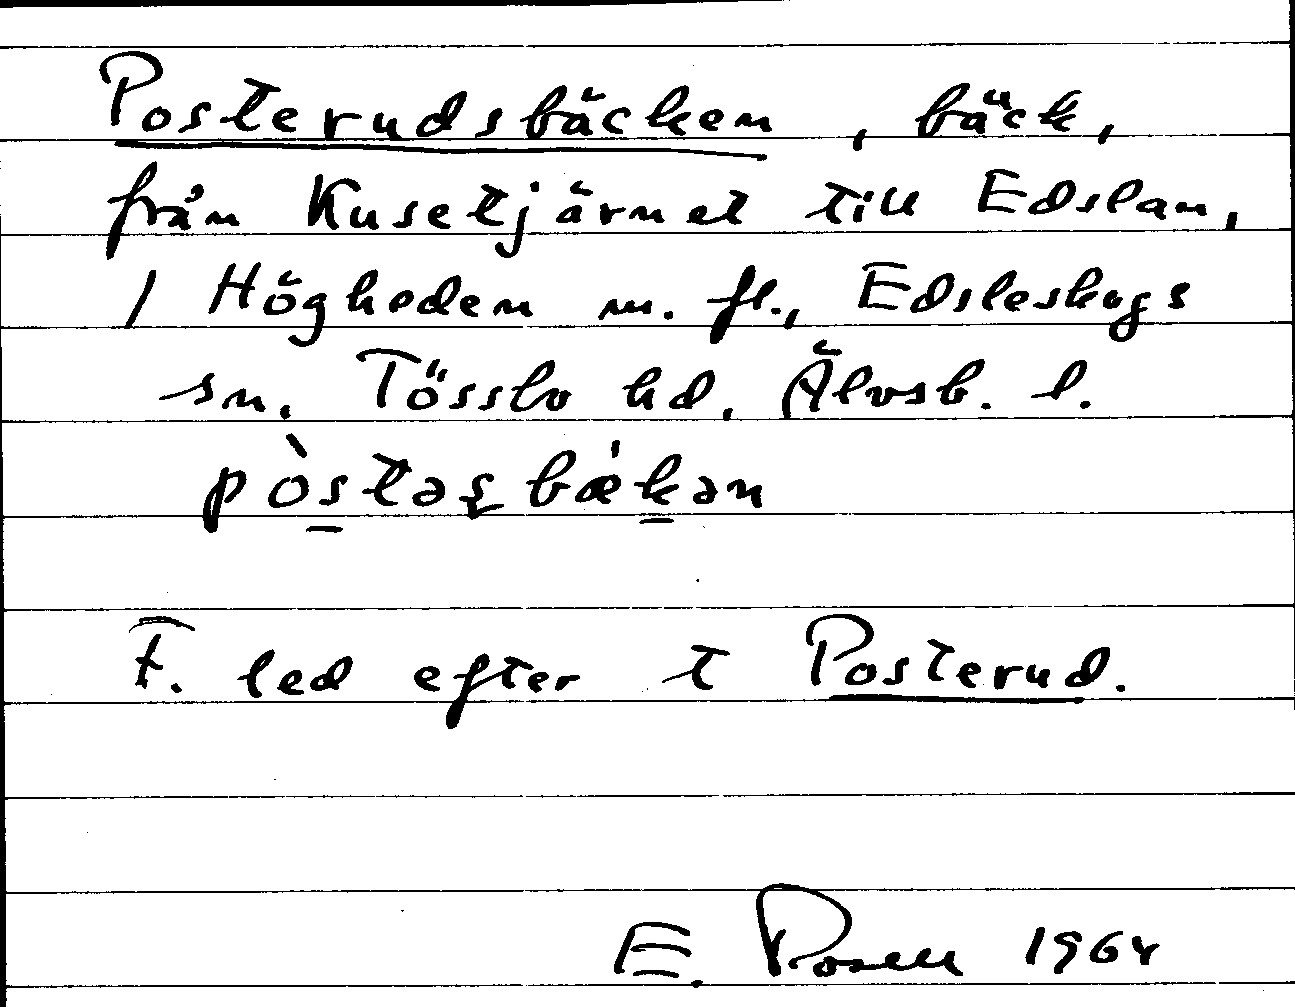 Posterudsbäcken, bäck,
från Kusetjärnet till Edslan,
1 Högheden m. fl., Edsleskogs
sn. Tössbo hd. Älvsb. l.
pòstəʂbækən
F. led efter t Posterud.
E. Rosell 1964